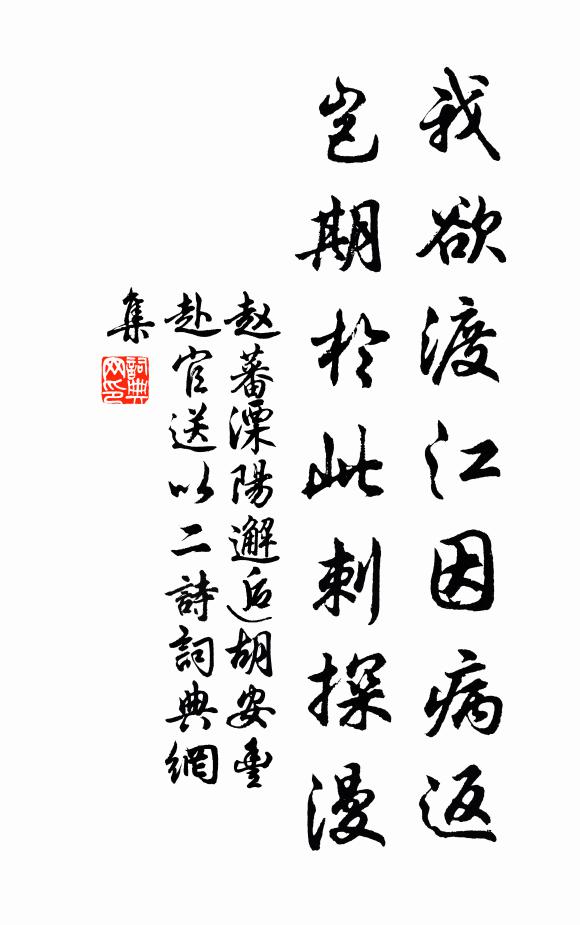 我欲渡江因病返
岂期於此刺探漫
赵蕃溧陽邂逅胡安豊
赴官送以二詩詞典網
集
詞典网印